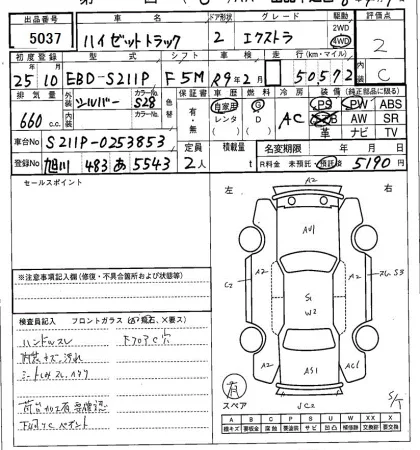 出品番号 車名 ドア形状 グレード 駆動 評価点
5037 ハイゼットトラック 2 エクストラ 2WD 4WD 2
初度登録 型式 シフト 車検 走行(km・マイル)
25年10月 EBD-S211P F5M R9年2月 50572 C
排気量 外装 シルバー カラーNo. S28 色替 保証書 車歴 燃料 冷房 装備(純正部品に限る)
660 c.c. 内装 カラーNo. 有・無 自家用 レンタ G D AC PS PW ABS
AW SR
革 ナビ TV
車台No S211P-0253853 定員 積載量 名変期限 年 月 日
登録No 旭川 483 あ 5543 2人 t R料金 未預託 預託済 5190円
セールスポイント 左 右
※注意事項記入欄(修復・不具合箇所および状態等)
検査員記入 フロントガラス (飛石、×要ス)
ハンドルスレ フロアC穴
内装キズ汚れ
下廻りC
A2
AU1
A2 A2
C2 A2 スレ S3
S1
W2
A2 A2
AC1 AS1 AC1
有
スペア JC2 S/T
A B C P S U W X XX
線キズ 要板金 腐蝕 要塗装 サビ 凹凸 補修跡 交換跡 要交換